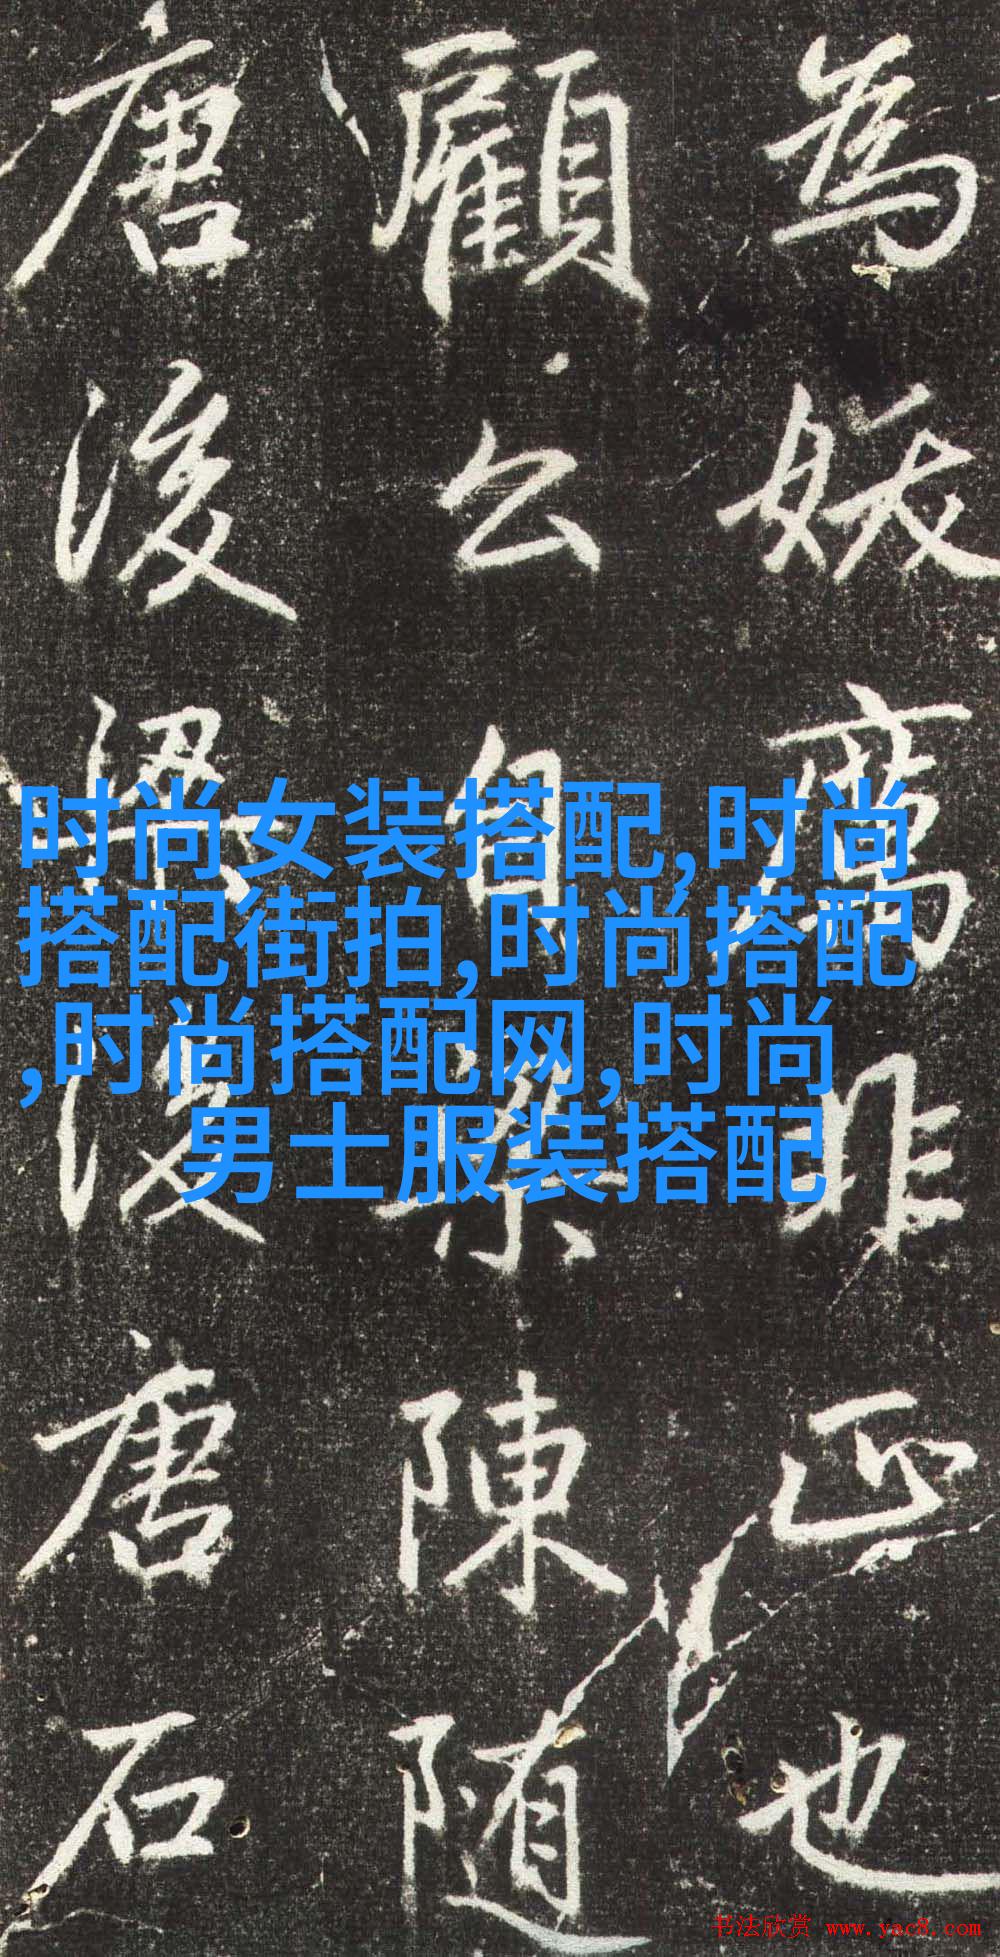 为妖厲非正也
顧公自梁陳随
唐後梁後唐石
时尚女装搭配,时尚
搭配街拍,时尚搭配
,时尚搭配网,时尚
男士服装搭配
书法欣赏 www.yac8.com